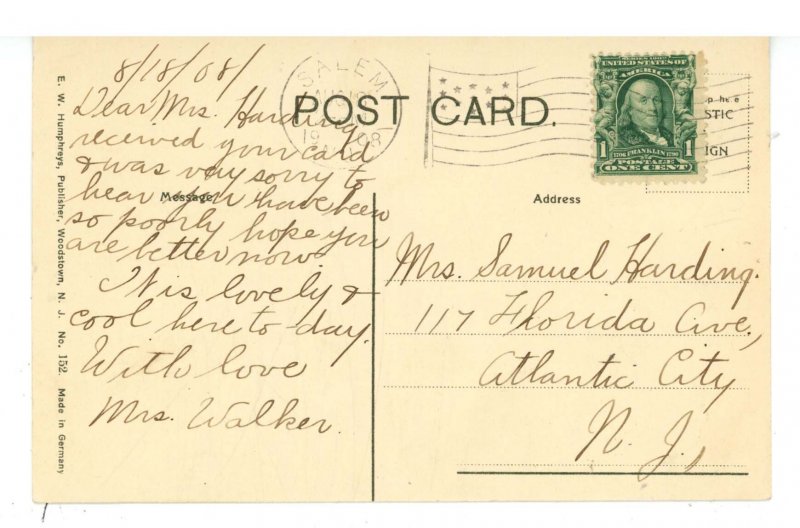 8/18/08/
Dear Mrs. Harding
received your card
& was very sorry to
hear you have been
so poorly hope you
are better now.
It is lovely &
cool here to-day.
With love
Mrs. Walker.
POST CARD.
Message
Address
SALEM
SERIES 1902
UNITED STATES OF
1706 FRANKLIN 1790
1 1
POSTAGE
ONE CENT
Mrs. Samuel Harding.
117 Florida Ave,
Atlantic City
N. J.,
E. W. Humphreys, Publisher, Woodstown, N. J. No. 152. Made in Germany